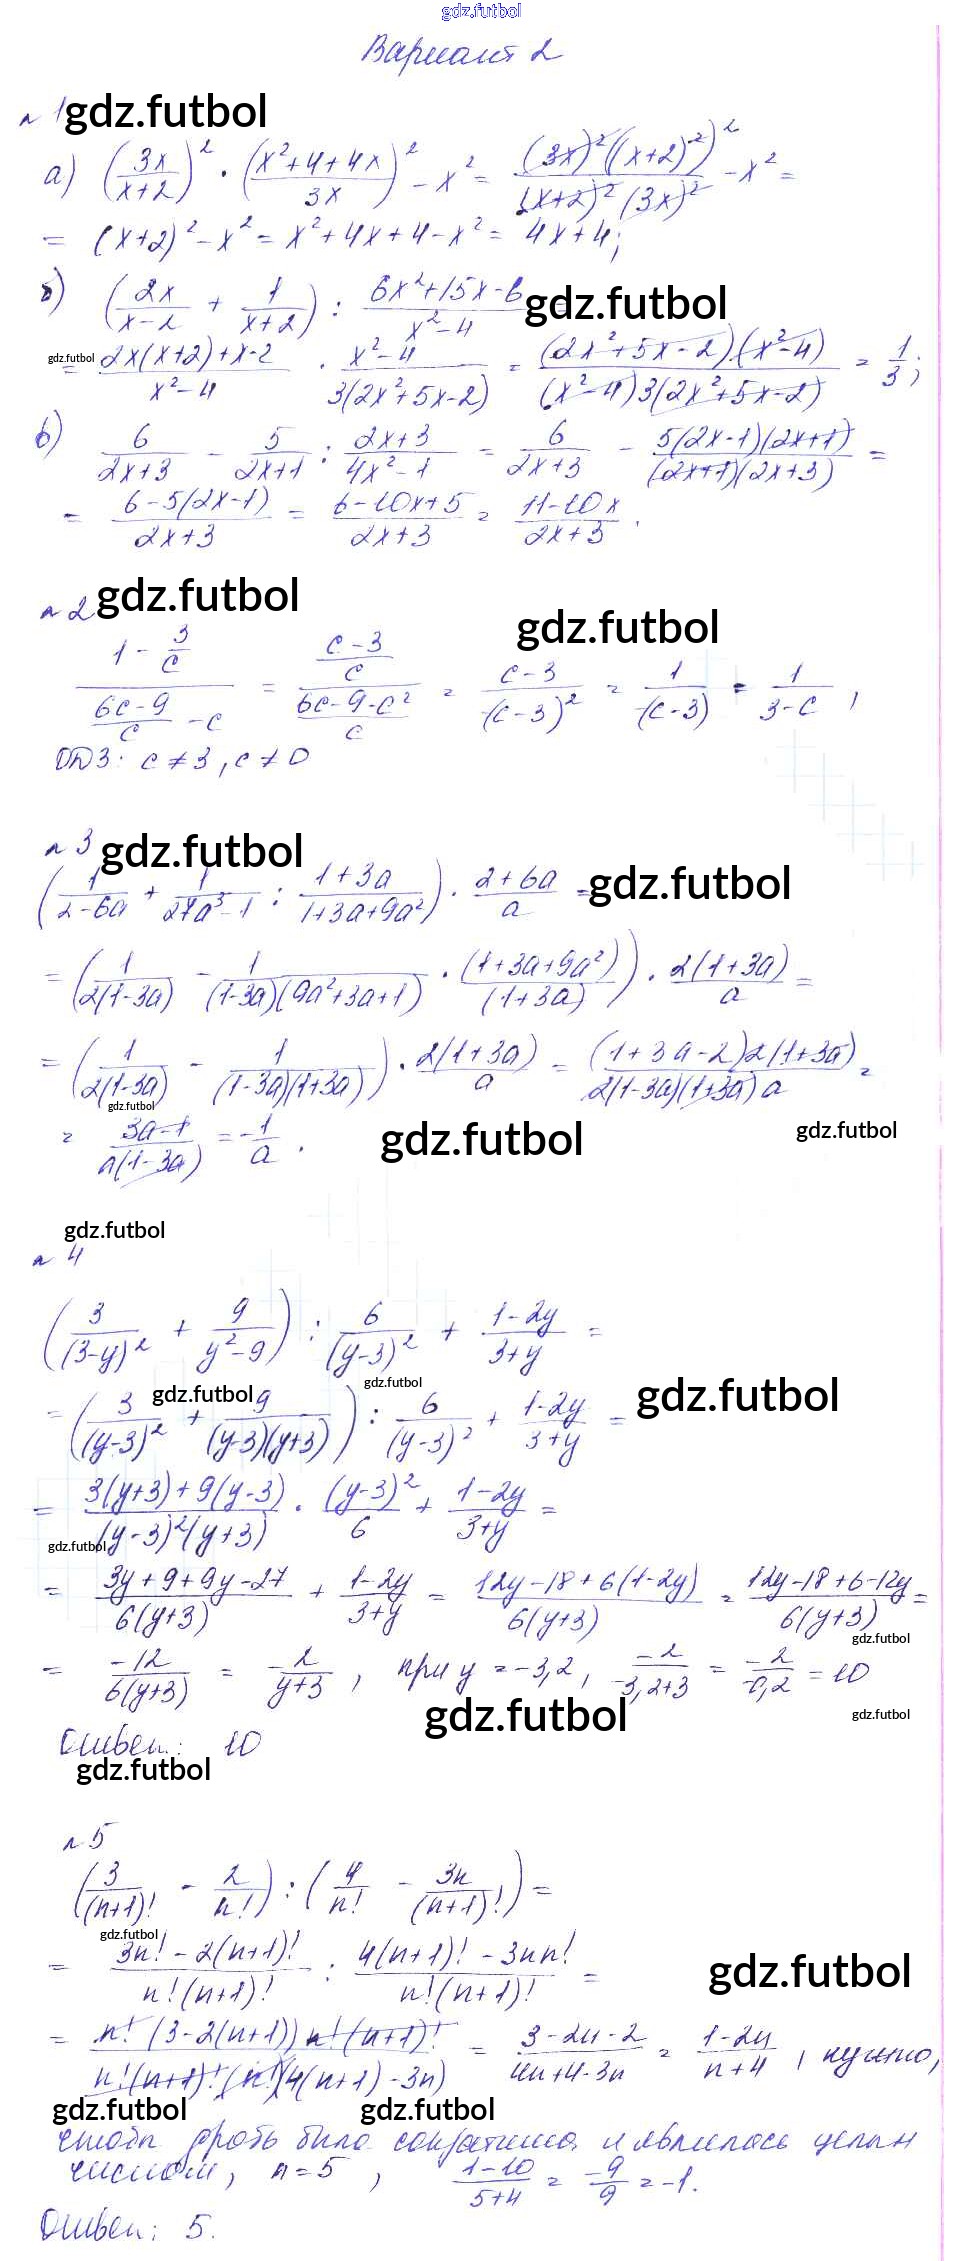 gdz.futbol
Вариант 2
№ 1 gdz.futbol
а) (3x/(x+2))² · ((x²+4+4x)/3x)² - x² = ((3x)²((x+2)²)²)/((x+2)²(3x)²) - x² =
= (x+2)² - x² = x²+4x+4-x² = 4x+4;
б) (2x/(x-2) + 1/(x+2)) : (6x²+15x-6)/(x²-4) = gdz.futbol
gdz.futbol
= (2x(x+2)+x-2)/(x²-4) · (x²-4)/(3(2x²+5x-2)) = ((2x²+5x-2)(x²-4))/((x²-4)3(2x²+5x-2)) = 1/3;
в) 6/(2x+3) - 5/(2x+1) : (2x+3)/(4x²-1) = 6/(2x+3) - (5(2x-1)(2x+1))/((2x+1)(2x+3)) =
= (6-5(2x-1))/(2x+3) = (6-10x+5)/(2x+3) = (11-10x)/(2x+3).
№ 2 gdz.futbol
gdz.futbol
(1 - 3/c)/((6c-9)/c - c) = ((c-3)/c)/((6c-9-c²)/c) = (c-3)/(-(c-3)²) = 1/(-(c-3)) = 1/(3-c),
ОДЗ: c ≠ 3, c ≠ 0
№ 3 gdz.futbol
(1/(2-6a) + 1/(27a³-1) : (1+3a)/(1+3a+9a²)) · (2+6a)/a = gdz.futbol
= (1/(2(1-3a)) - 1/((1-3a)(9a²+3a+1)) · (1+3a+9a²)/(1+3a)) · 2(1+3a)/a =
= (1/(2(1-3a)) - 1/((1-3a)(1+3a))) · 2(1+3a)/a = ((1+3a-2)2(1+3a))/(2(1-3a)(1+3a)a) =
gdz.futbol
= (3a-1)/(a(1-3a)) = -1/a.
gdz.futbol
gdz.futbol
gdz.futbol
№ 4
(3/(3-y)² + 9/(y²-9)) : 6/(y-3)² + (1-2y)/(3+y) =
gdz.futbol
gdz.futbol
gdz.futbol
= (3/(y-3)² + 9/((y-3)(y+3))) : 6/(y-3)² + (1-2y)/(3+y) =
= (3(y+3)+9(y-3))/((y-3)²(y+3)) · (y-3)²/6 + (1-2y)/(3+y) =
gdz.futbol
= (3y+9+9y-27)/(6(y+3)) + (1-2y)/(3+y) = (12y-18+6(1-2y))/(6(y+3)) = (12y-18+6-12y)/(6(y+3)) =
gdz.futbol
= -12/(6(y+3)) = -2/(y+3), при y = -3,2, -2/(-3,2+3) = -2/(-0,2) = 10
gdz.futbol
gdz.futbol
Ответ: 10
gdz.futbol
№ 5
(3/(n+1)! - 2/n!) : (4/n! - 3n/(n+1)!) =
gdz.futbol
= (3n!-2(n+1)!)/(n!(n+1)!) : (4(n+1)!-3nn!)/(n!(n+1)!) =
gdz.futbol
= (n!(3-2(n+1))n!(n+1)!)/(n!(n+1)!(n!)(4(n+1)-3n)) = (3-2n-2)/(4n+4-3n) = (1-2n)/(n+4), нужно,
gdz.futbol
gdz.futbol
чтобы дробь была сократима и являлась целым
числом, n = 5, (1-10)/(5+4) = -9/9 = -1.
Ответ: 5.